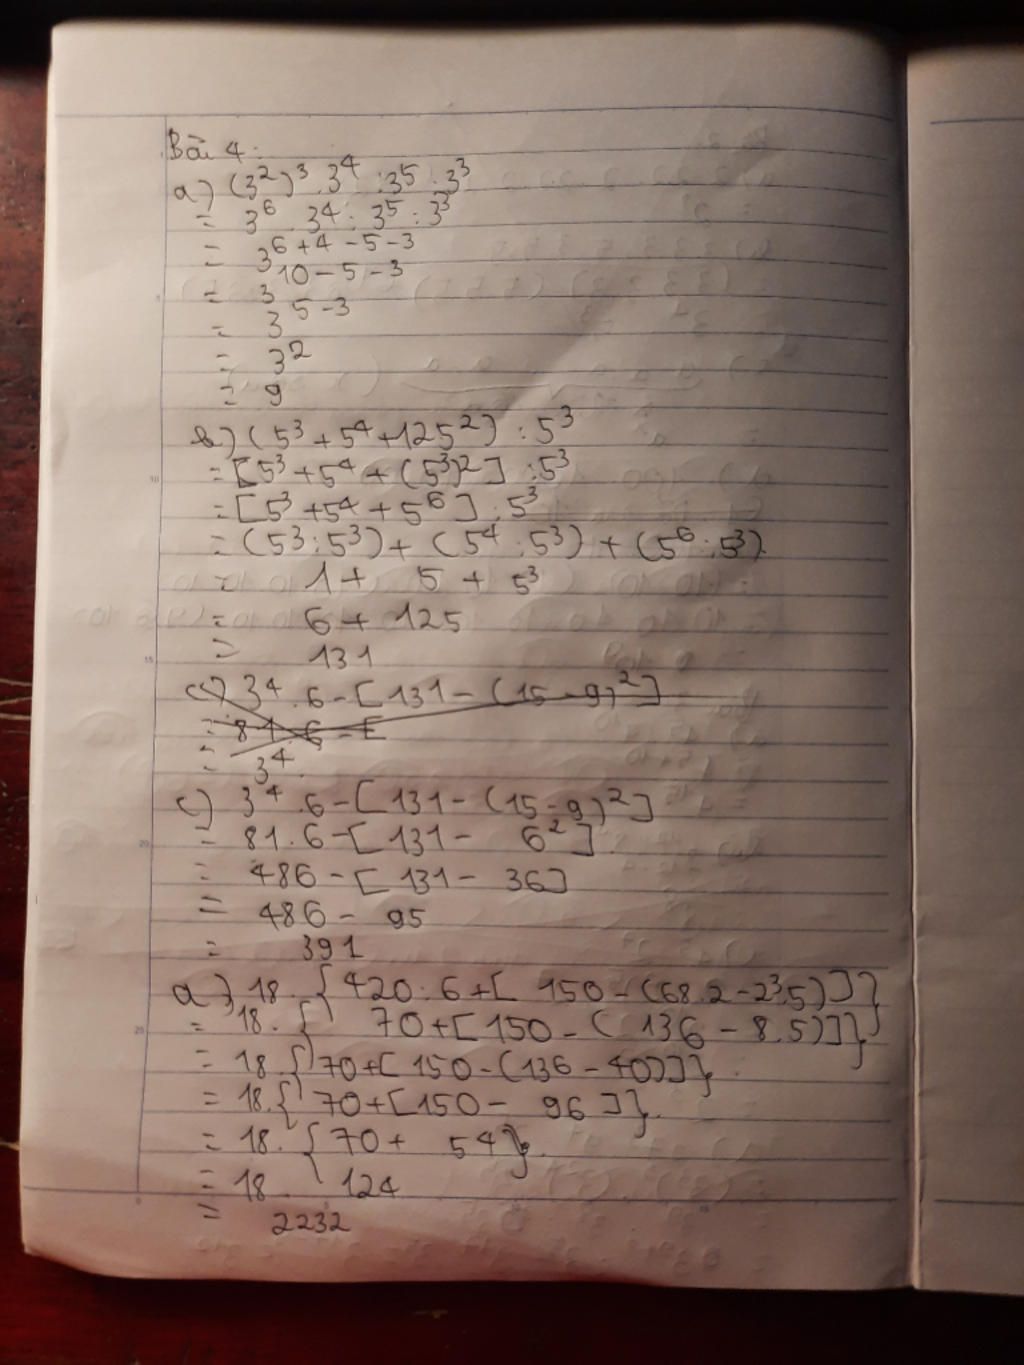 Bài 4:
a) (3²)³ . 3⁴ : 3⁵ : 3³
= 3⁶ . 3⁴ : 3⁵ : 3³
= 3⁶⁺⁴⁻⁵⁻³
= 3¹⁰⁻⁵⁻³
= 3⁵⁻³
= 3²
= 9
b) (5³ + 5⁴ + 125²) : 5³
= [5³ + 5⁴ + (5³)²] : 5³
= [5³ + 5⁴ + 5⁶] : 5³
= (5³ : 5³) + (5⁴ : 5³) + (5⁶ : 5³).
= 1 + 5 + 5³
= 6 + 125
= 131
c) 3⁴ . 6 - [131 - (15 - 9)²]
= 81 . 6 - [
= 3⁴.
c) 3⁴ . 6 - [131 - (15 - 9)²]
= 81 . 6 - [131 - 6²]
= 486 - [131 - 36]
= 486 - 95
= 391
a) 18 . {420 : 6 + [150 - (68 . 2 - 2³ . 5)]}
= 18 . {70 + [150 - (136 - 8 . 5)]}
= 18 . {70 + [150 - (136 - 40)]}.
= 18 . {70 + [150 - 96]}.
= 18 . {70 + 54}.
= 18 . 124
= 2232